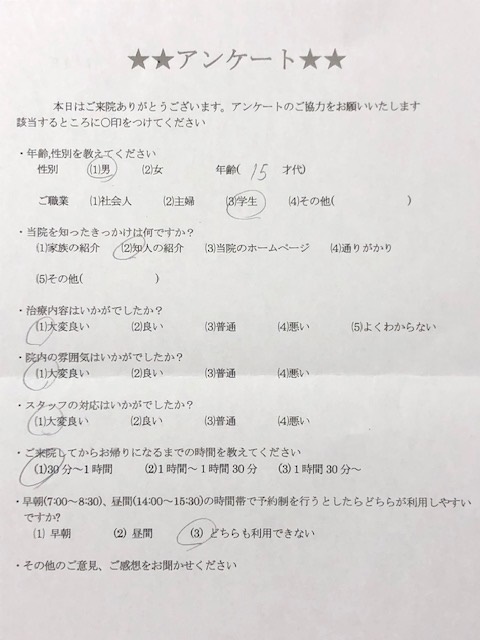 ★★アンケート★★
本日はご来院ありがとうございます。アンケートのご協力をお願いいたします
該当するところに〇印をつけてください
・年齢,性別を教えてください
性別 (1)男 (2)女 年齢( 15 才代)
ご職業 (1)社会人 (2)主婦 (3)学生 (4)その他( )
・当院を知ったきっかけは何ですか？
(1)家族の紹介 (2)知人の紹介 (3)当院のホームページ (4)通りがかり
(5)その他( )
・治療内容はいかがでしたか？
(1)大変良い (2)良い (3)普通 (4)悪い (5)よくわからない
・院内の雰囲気はいかがでしたか？
(1)大変良い (2)良い (3)普通 (4)悪い
・スタッフの対応はいかがでしたか？
(1)大変良い (2)良い (3)普通 (4)悪い
・ご来院してからお帰りになるまでの時間を教えてください
(1)30分～1時間 (2)1時間～1時間30分 (3)1時間30分～
・早朝(7:00～8:30)、昼間(14:00～15:30)の時間帯で予約制を行うとしたらどちらが利用しやすい
ですか?
(1) 早朝 (2) 昼間 (3) どちらも利用できない
・その他のご意見、ご感想をお聞かせください